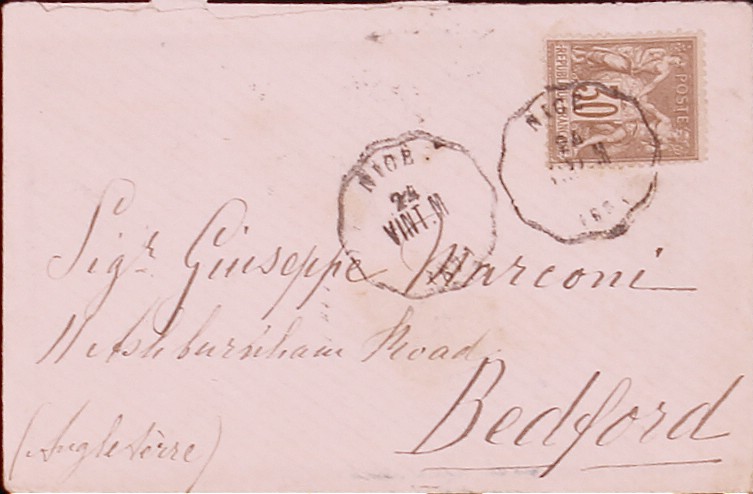 POSTE
30
REPUBLIQUE FRANCAISE
NICE
NICE
24
VINT.M
Sigr. Giuseppe Marconi
11 Ashburnham Road
Bedford
(Angleterre)